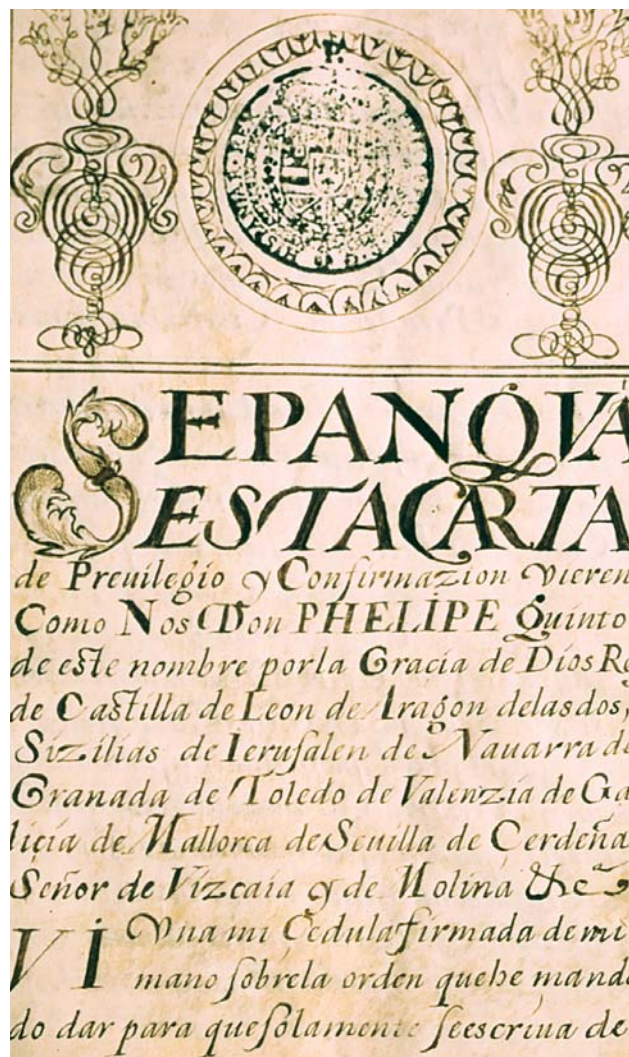 P.
SEPANQVA
ESTACARTA
de Preuilegio y Confirmazion vieren
Como Nos Don PHELIPE Quinto
de este nombre porla Gracia de Dios Re
de Castilla de Leon de Aragon delasdos,
Sizilias de Ierusalen de Nauarra de
Granada de Toledo de Valenzia de Ga
licia de Mallorca de Seuilla de Cerdeña
Señor de Vizcaia y de Molina &c.ª
VI Vna mi Cedula firmada de mi
mano sobrela orden quehe manda
do dar para que solamente seescriua de